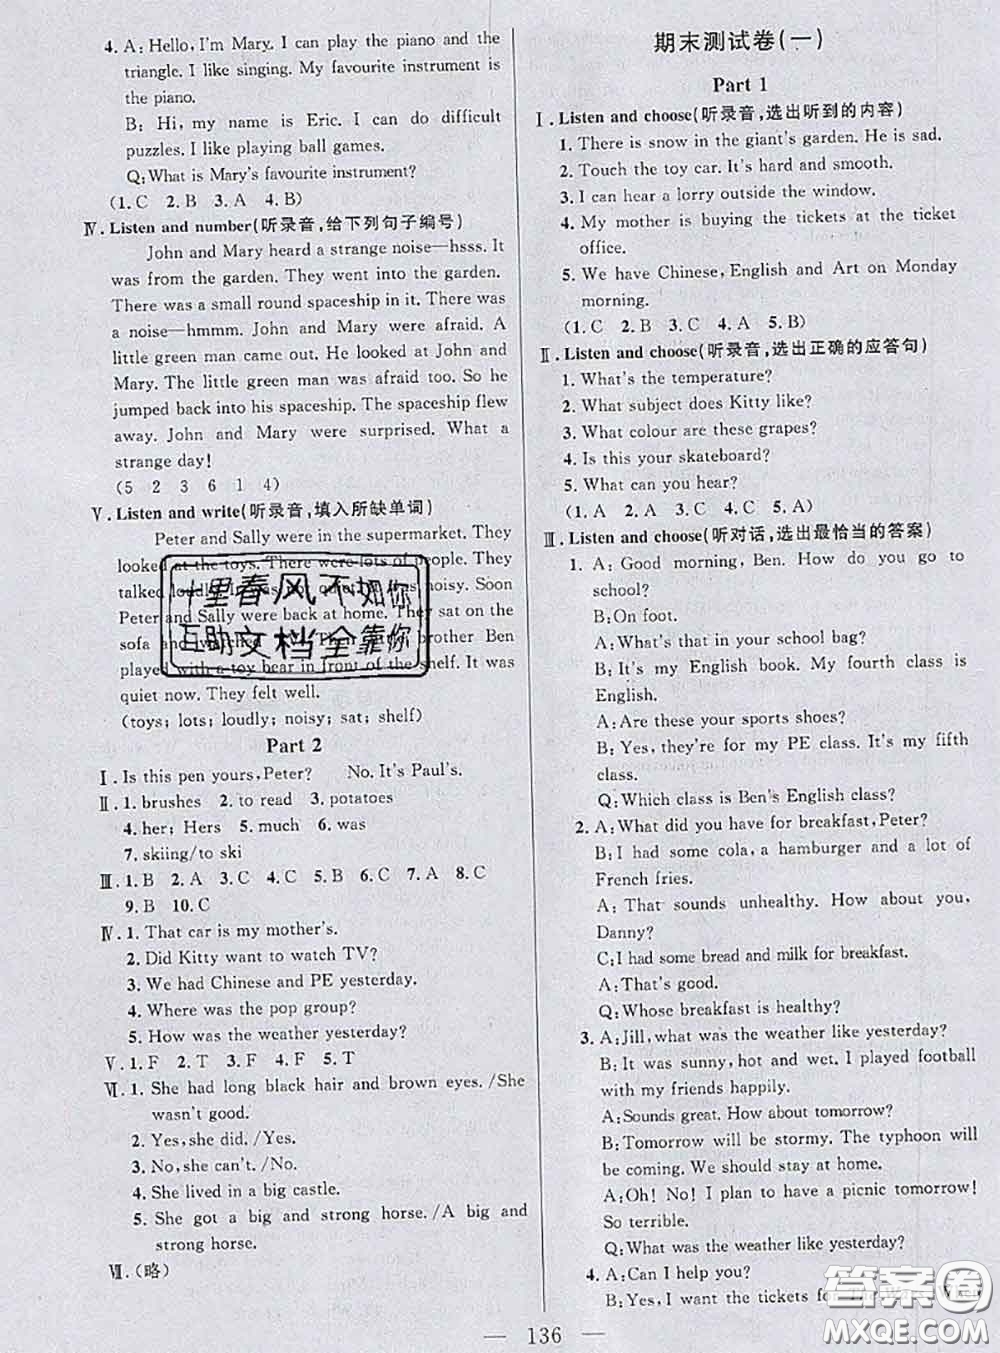 4. A: Hello, I'm Mary. I can play the piano and the
triangle. I like singing. My favourite instrument is
the piano.
B: Hi, my name is Eric. I can do difficult
puzzles. I like playing ball games.
Q: What is Mary's favourite instrument?
(1. C 2. B 3. A 4. B)
Ⅳ. Listen and number(听录音,给下列句子编号)
John and Mary heard a strange noise—hsss. It
was from the garden. They went into the garden.
There was a small round spaceship in it. There was
a noise—hmmm. John and Mary were afraid. A
little green man came out. He looked at John and
Mary. The little green man was afraid too. So he
jumped back into his spaceship. The spaceship flew
away. John and Mary were surprised. What a
strange day!
(5 2 3 6 1 4)
Ⅴ. Listen and write(听录音,填入所缺单词)
Peter and Sally were in the supermarket. They
looked at the toys. There were lots of people. They
talked loudly. It was not quiet. It was noisy. Soon
Peter and Sally were back at home. They sat on the
sofa and watched TV. Their little brother Ben
played with a toy bear in front of the shelf. It was
quiet now. They felt well.
(toys; lots; loudly; noisy; sat; shelf)
十里春风不如你
互助文档全靠你
Part 2
Ⅰ. Is this pen yours, Peter? No. It's Paul's.
Ⅱ. 1. brushes 2. to read 3. potatoes
4. her; Hers 5. much 6. was
7. skiing/to ski
Ⅲ. 1. B 2. A 3. C 4. C 5. C 6. C 7. A 8. C
9. B 10. C
Ⅳ. 1. That car is my mother's.
2. Did Kitty want to watch TV?
3. We had Chinese and PE yesterday.
4. Where was the pop group?
5. How was the weather yesterday?
Ⅴ. 1. F 2. T 3. F 4. F 5. T
Ⅵ. 1. She had long black hair and brown eyes. /She
wasn't good.
2. Yes, she did. /Yes.
3. No, she can't. /No.
4. She lived in a big castle.
5. She got a big and strong horse. /A big and
strong horse.
Ⅶ. (略)
期末测试卷(一)
Part 1
Ⅰ. Listen and choose(听录音,选出听到的内容)
1. There is snow in the giant's garden. He is sad.
2. Touch the toy car. It's hard and smooth.
3. I can hear a lorry outside the window.
4. My mother is buying the tickets at the ticket
office.
5. We have Chinese, English and Art on Monday
morning.
(1. C 2. B 3. C 4. A 5. B)
Ⅱ. Listen and choose(听录音,选出正确的应答句)
1. What's the temperature?
2. What subject does Kitty like?
3. What colour are these grapes?
4. Is this your skateboard?
5. What can you hear?
(1. A 2. A 3. C 4. C 5. A)
Ⅲ. Listen and choose(听对话,选出最恰当的答案)
1. A: Good morning, Ben. How do you go to
school?
B: On foot.
A: What's that in your school bag?
B: It's my English book. My fourth class is
English.
A: Are these your sports shoes?
B: Yes, they're for my PE class. It's my fifth
class.
Q: Which class is Ben's English class?
2. A: What did you have for breakfast, Peter?
B: I had some cola, a hamburger and a lot of
French fries.
A: That sounds unhealthy. How about you,
Danny?
C: I had some bread and milk for breakfast.
A: That's good.
Q: Whose breakfast is healthy?
3. A: Jill, what was the weather like yesterday?
B: It was sunny, hot and wet. I played football
with my friends happily.
A: Sounds great. How about tomorrow?
B: Tomorrow will be stormy. The typhoon will
be coming. We should stay at home.
A: Oh! No! I plan to have a picnic tomorrow!
So terrible.
Q: What was the weather like yesterday?
4. A: Can I help you?
B: Yes, I want the tickets for
答案圈
MXQE.COM
— 136 —